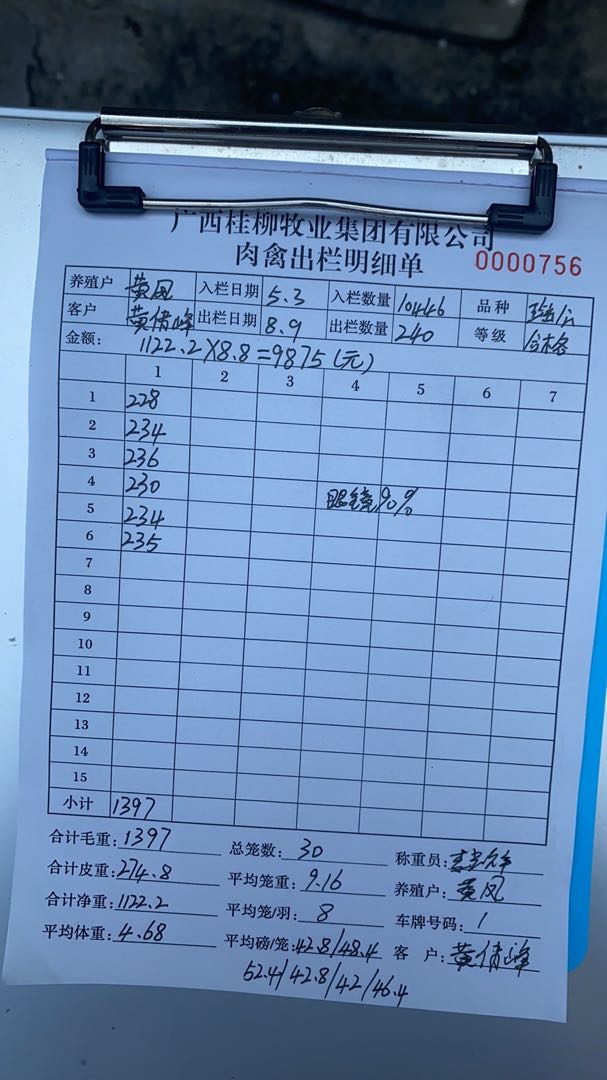 广西桂柳牧业集团有限公司
肉禽出栏明细单 0000756
养殖户 黄凤 入栏日期 5.3 入栏数量 10446 品种
客户 黄倩峰 出栏日期 8.9 出栏数量 240 等级 合格
金额: 1122.2×8.8=9875(元)
1 2 3 4 5 6 7
1 228
2 234
3 236
4 230 眼镜90%
5 234
6 235
7
8
9
10
11
12
13
14
15
小计 1397
合计毛重: 1397 总笼数: 30 称重员:
合计皮重: 274.8 平均笼重: 9.16 养殖户: 黄凤
合计净重: 1122.2 平均笼/羽: 8 车牌号码: 1
平均体重: 4.68 平均磅/笼: 42.8/48.4 客 户: 黄倩峰
52.4/42.8/42/46.4